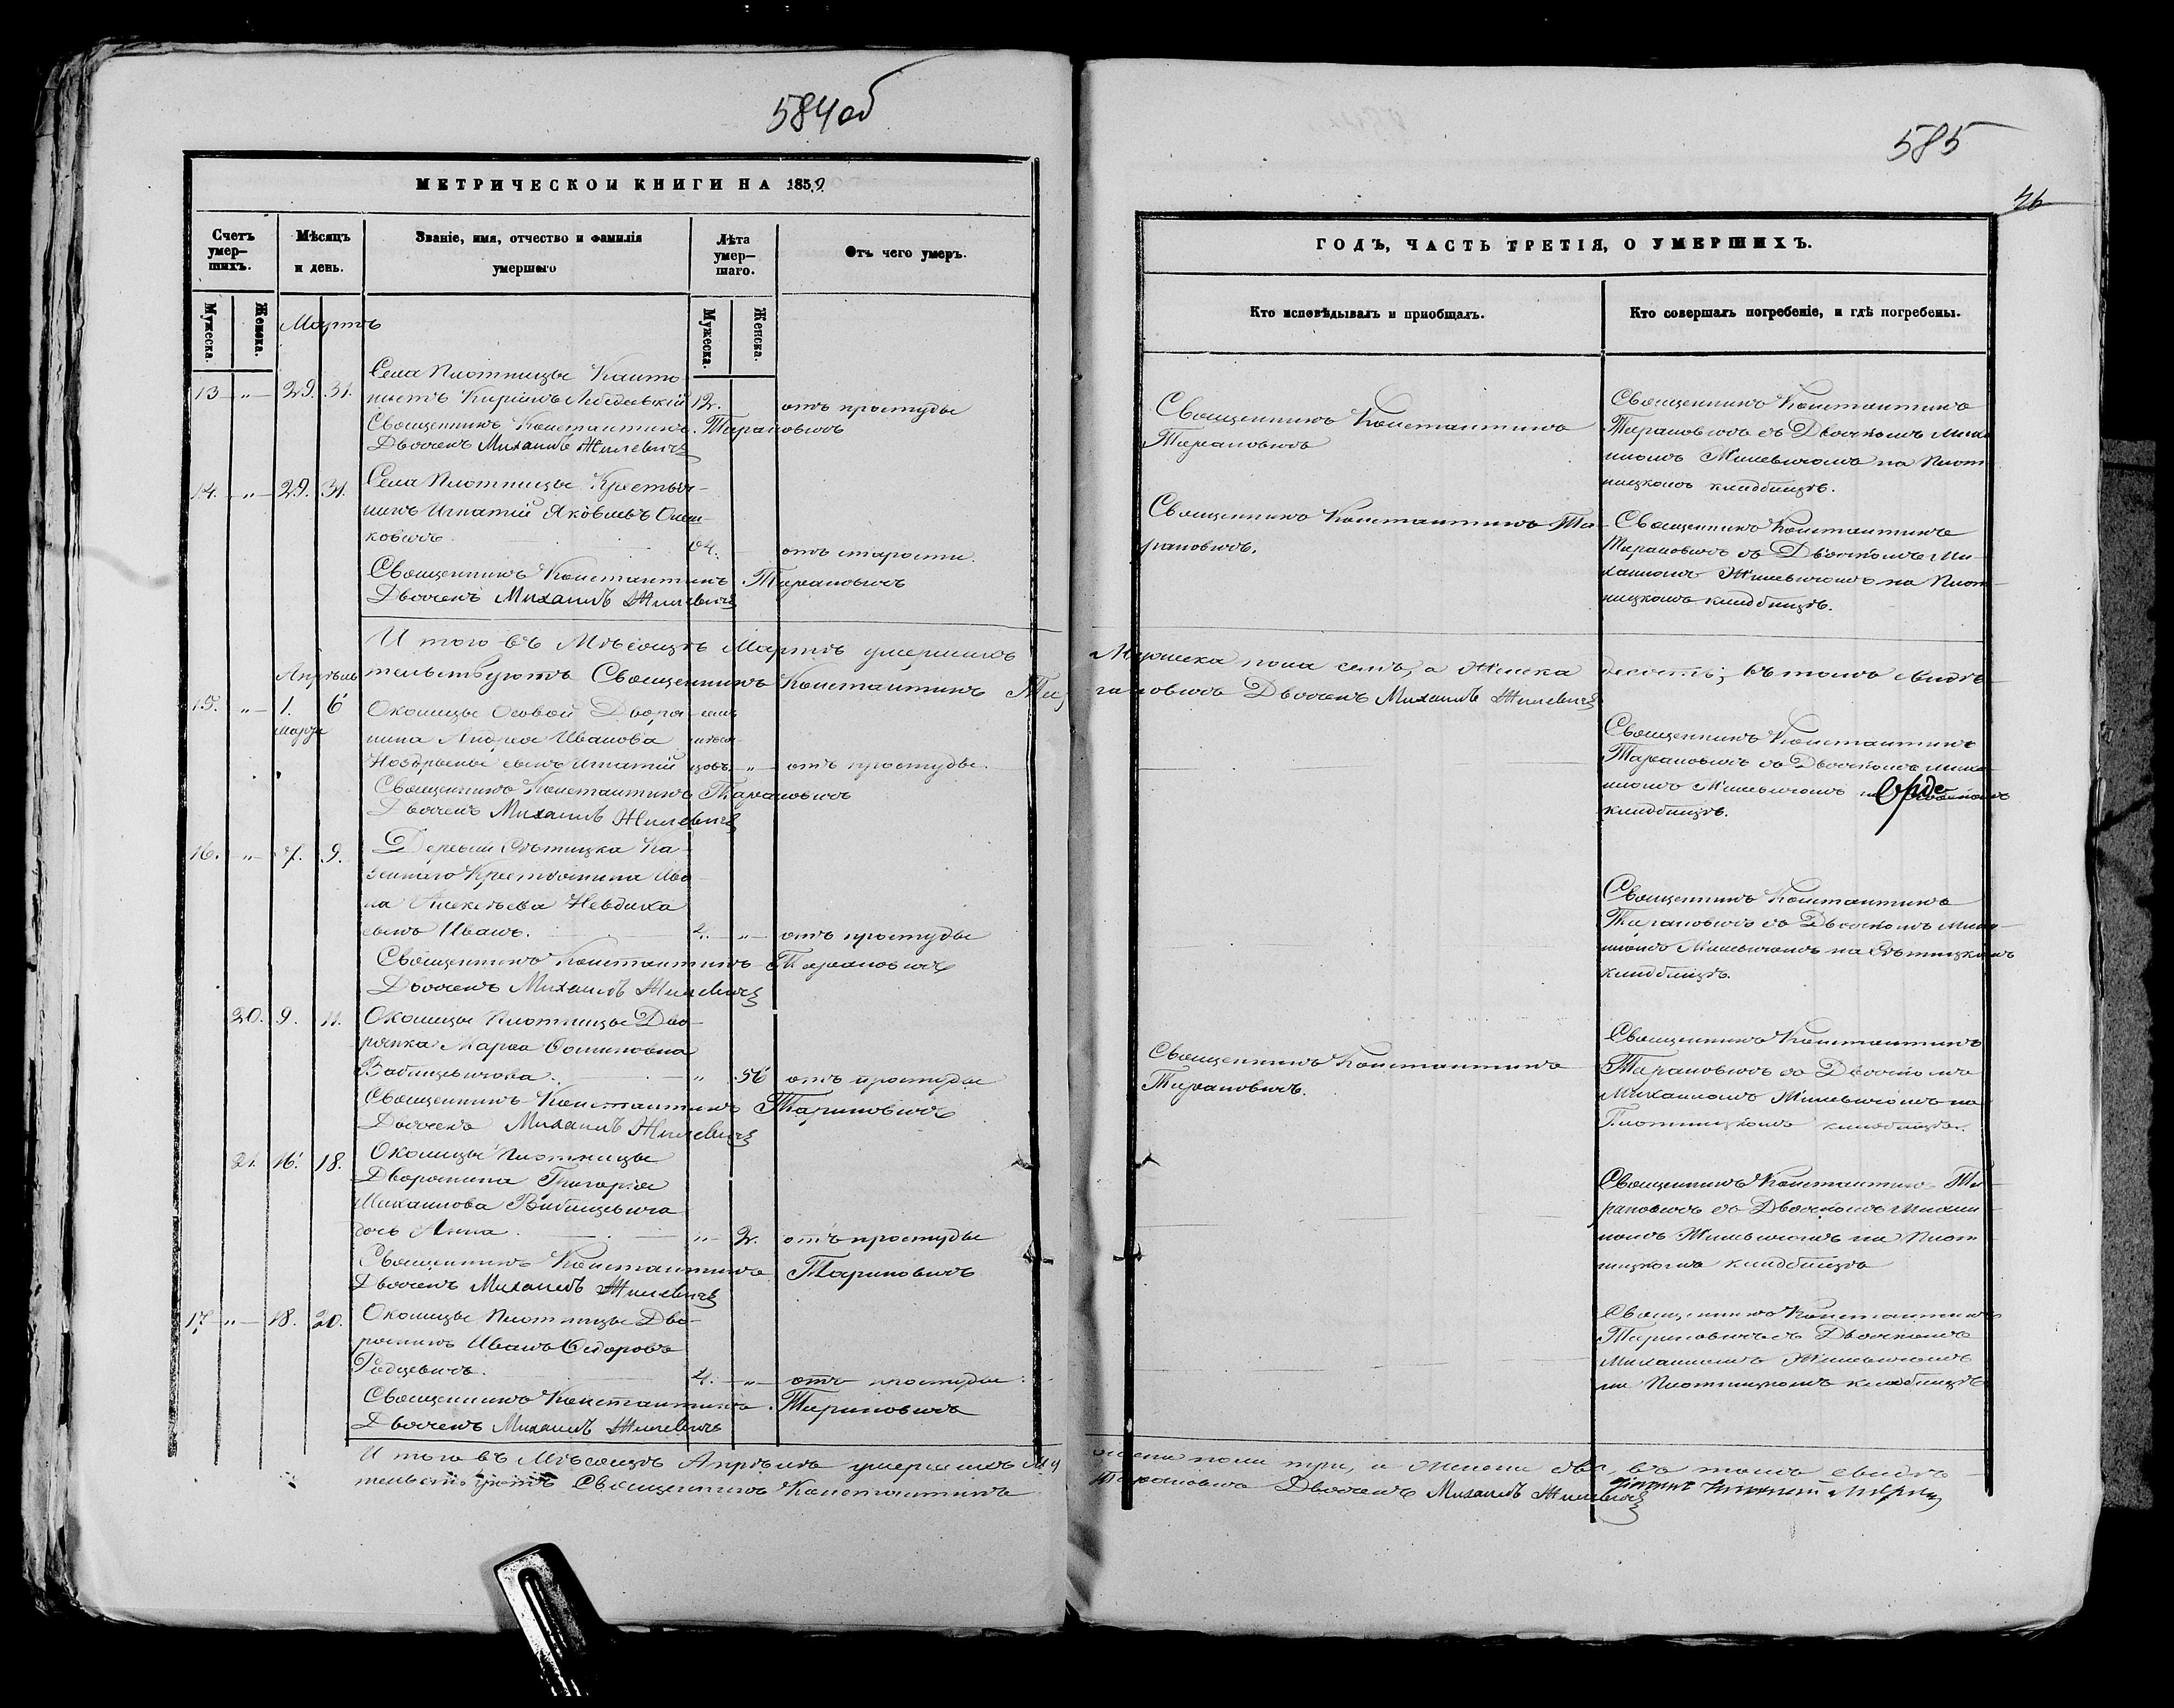 584об
МЕТРИЧЕСКОЙ КНИГИ НА 1859
Счетъ умер-шихъ.
Мѣсяцъ и день.
Званіе, имя, отчество и фамилія умершаго
Лѣта умер-шаго.
Отъ чего умеръ.
Мужеска.
Женска.
Мужеска.
Женска.
Мартъ
Села ПлотницыКанто-
13 „ 29. 31. нистъ Лебедевскій 12. отъ простуды
Священникъ Константинъ Тарановичъ
Дьячекъ Михаилъ Жилевичъ
14. „ 29. 31. Села Плотницы Крестья-
нинъ Игнатій Яковлевъ
ковичъ отъ старости.
Священникъ Константинъ Тарановичъ
Дьячекъ Михаилъ Жилевичъ
И того въ Мѣсяцѣ Мартѣ умершихъ
Апрѣль тельствуютъ Священникъ Константинъ Та
15. „ 1. 6 Околицы Дворя-
Марта нина Андрея Иванова
сынъ Игнатій „ отъ простуды.
Священникъ Константинъ Тарановичъ
Дьячекъ Михаилъ Жилевичъ
16. „ 7. 9. Деревни Ка-
зеннаго Крестьянина Ива-
на Алексѣева
сынъ Иванъ. „ отъ простуды
Священникъ Константинъ Тарановичъ
Дьячекъ Михаилъ Жилевичъ
20. 9. 11. Околицы Плотницы Дво-
рянка Марѳа Осиповна
Вабищевичова. „ 56 отъ простуды
Священникъ Константинъ Тарановичъ
Дьячекъ Михаилъ Жилевичъ
21. 16. 18. Околицы Плотницы
Дворянина Григорія
Михаилова Вабищевича
дочь Анна „ 2. отъ простуды
Священникъ Константинъ Тарановичъ
Дьячекъ Михаилъ Жилевичъ
17 „ 18. 20. Околицы Плотницы Дво-
рянинъ Иванъ Сидоровъ
Родцевичъ. 4. „ отъ простуды
Священникъ Константинъ Тарановичъ
Дьячекъ Михаилъ Жилевичъ
И того въ Мѣсяцѣ Апрѣлѣ умершихъ Му
тельствуютъ Священникъ Константинъ
585
26
ГОДЪ, ЧАСТЬ ТРЕТІЯ, О УМЕРШИХЪ.
Кто исповѣдывалъ и пріобщалъ.
Кто совершалъ погребеніе, и гдѣ погребены.
Священникъ Константинъ
Тарановичъ
Священникъ Константинъ
Тарановичъ съ Дьячкомъ Миха
иломъ Жилевичомъ на Плот
ницкомъ кладбищѣ.
Священникъ Константинъ Та-
рановичъ.
Священникъ Константинъ
Тарановичъ съ Дьячкомъ Ми-
хаиломъ Жилевичомъ на Плот-
ницкомъ кладбищѣ.
Мужеска пола семь, а Женска десять; въ томъ свидѣ-
рановичъ Дьячекъ Михаилъ Жилевичъ
Священникъ Константинъ
Тарановичъ съ Дьячкомъ Миха
иломъ Жилевичомъ
кладбищѣ.
Священникъ Константинъ
Тарановичъ съ Дьячкомъ Миха-
иломъ Жилевичомъ на
кладбищѣ.
Священникъ Константинъ
Тарановичъ.
Священникъ Константинъ
Тарановичъ съ Дьячкомъ
Михаиломъ Жилевичомъ на
Плотницкомъ кладбищѣ.
Священникъ Константинъ Та-
рановичъ съ Дьячкомъ Михаи-
ломъ Жилевичомъ на Плот
ницкомъ кладбищѣ
Священникъ Константинъ
Тарановичъ съ Дьячкомъ
Михаиломъ Жилевичомъ
на Плотницкомъ кладбищѣ
жеска пола три, а женска два, въ томъ свидѣ-
Тарановичъ Дьячекъ Михаилъ Жилевичъ